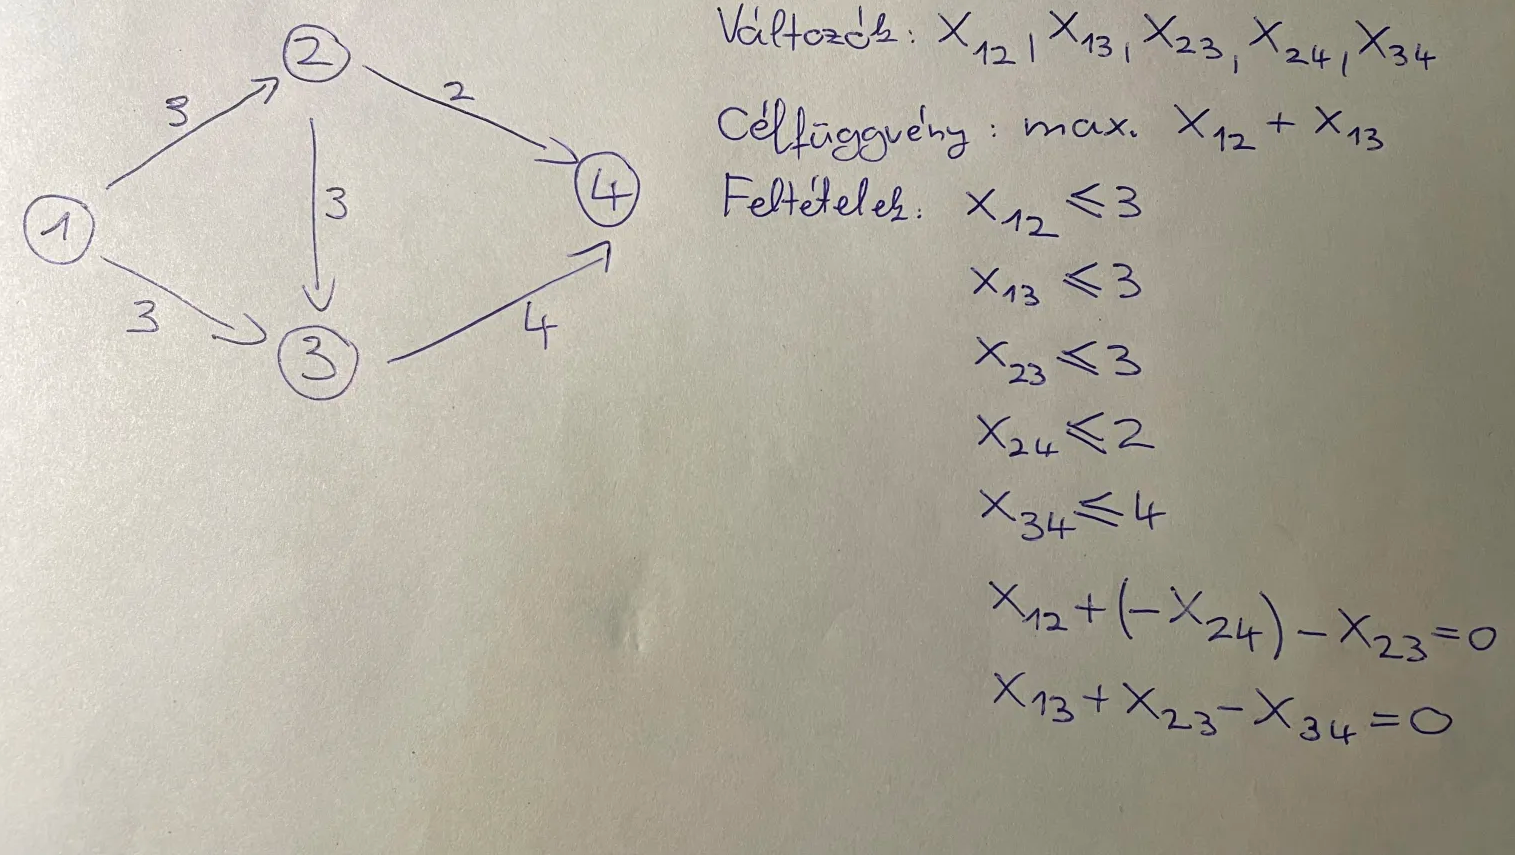 Változók: x12, x13, x23, x24, x34
Célfüggvény: max. x12 + x13
Feltételek: x12 ⩽ 3
x13 ⩽ 3
x23 ⩽ 3
x24 ⩽ 2
x34 ⩽ 4
x12 + (-x24) - x23 = 0
x13 + x23 - x34 = 0
2
3
2
1
3
4
3
3
4